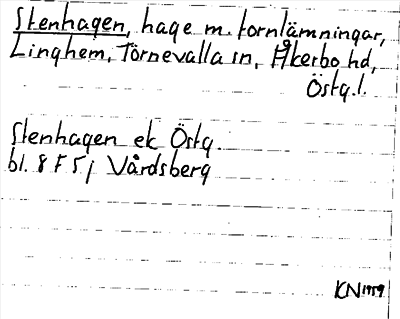 Stenhagen, hage m. fornlämningar,
Linghem, Törnevalla sn, Åkerbo hd,
Östg.l.
Stenhagen ek Östg.
bl. 8 F 5 j Vårdsberg
KN 1959